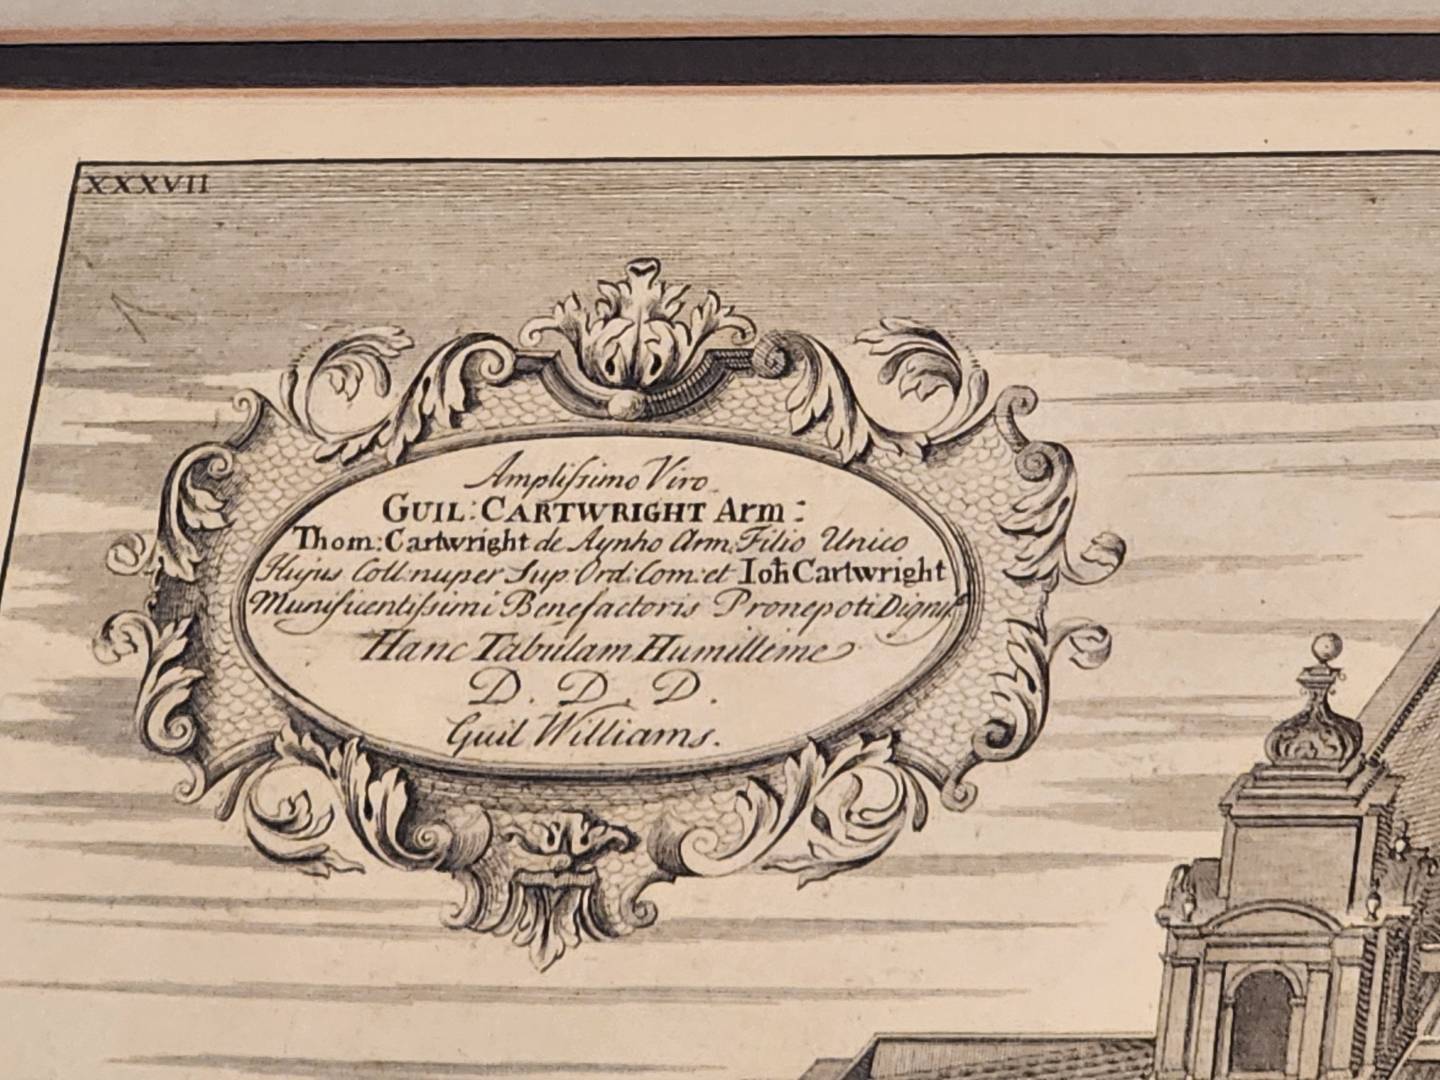 XXXVII
Amplissimo Viro
GUIL: CARTWRIGHT Arm:
Thom: Cartwright de Aynho Arm. Filio Unico
Hujus Coll: nuper Sup: Ord: Com: et Ioh Cartwright
Munificentissimi Benefactoris Pronepoti Digniss
Hanc Tabulam Humillime
D. D. D.
Guil Williams.